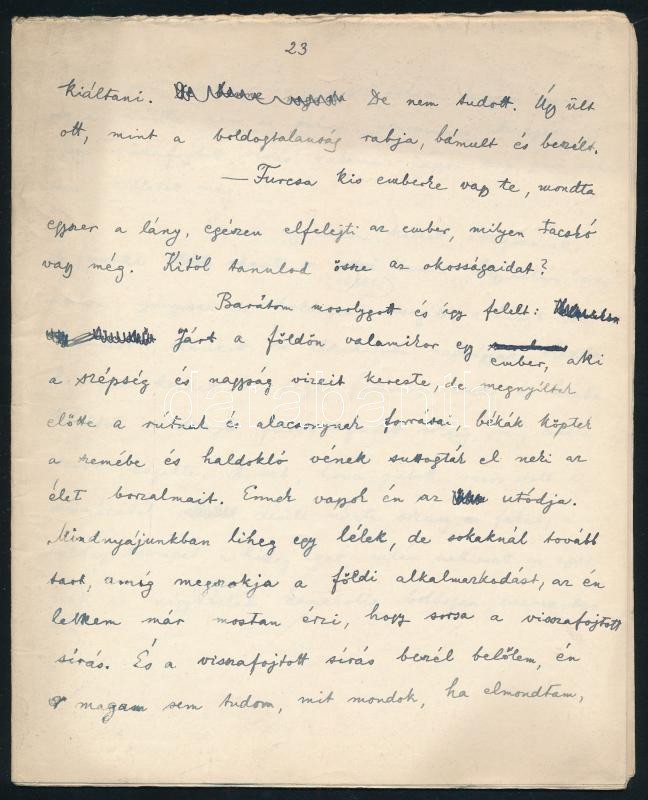 23
kiáltani. De nem tudott. Úgy ült
ott, mint a boldogtalanság rabja, bámult és beszélt.
— Furcsa kis emberke vagy te, mondta
egyszer a lány, egészen elfelejti az ember, milyen tacskó
vagy még. Kitől tanulod össze az okosságaidat?
Barátom mosolygott és így felelt:
Járt a földön valamikor egy ember, aki
a szépség és nagyság vizeit kereste, de megnyíltak
előtte a rútnak és alacsonynak forrásai, békák köptek
a szemébe és haldokló vének suttogták el neki az
élet borzalmait. Ennek vagyok én az utódja.
Mindnyájunkban liheg egy lélek, de sokaknál tovább
tart, amíg megszokja a földi alkalmazkodást, az én
lelkem már mostan érzi, hogy sorsa a visszafojtott
sírás. És a visszafojtott sírás beszél belőlem, én
magam sem tudom, mit mondok, ha elmondtam,
darabanth